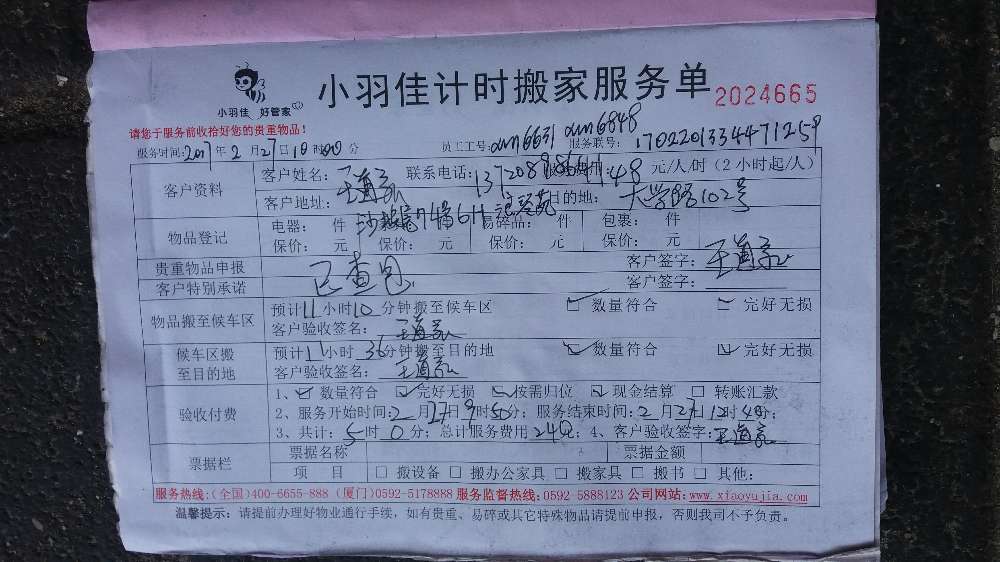 小羽佳计时搬家服务单 2024665
小羽佳 好管家
请您于服务前收拾好您的贵重物品!
服务时间:2017年2月27日10时00分 员工工号:xm6631 xm6848 服务联号:
客户资料 客户姓名: 联系电话: 48元/人/时(2小时起/人)
客户地址: 目的地:大学路102号
物品登记 电器: 件 易碎品: 件 包裹: 件
保价: 元 保价: 元 保价: 元 保价: 元
贵重物品申报 已查包 客户签字:
客户特别承诺 客户签字:
物品搬至候车区 预计11小时10分钟搬至候车区 数量符合 完好无损
客户验收签名:
候车区搬至目的地 预计11小时36分钟搬至目的地 数量符合 完好无损
客户验收签名:
验收付费 1、数量符合 完好无损 按需归位 现金结算 转账汇款
2、服务开始时间:2月27日9时5分; 服务结束时间:2月27日12时40分;
3、共计:5时0分; 总计服务费用240元; 4、客户验收签字:
票据栏 票据名称 票据金额
项 目 搬设备 搬办公家具 搬家具 搬书 其他:
服务热线:(全国)400-6655-888 (厦门)0592-5178888 服务监督热线:0592-5888123 公司网站:www.xiaoyujia.com
温馨提示: 请提前办理好物业通行手续,如有贵重、易碎或其它特殊物品请提前申报,否则我司不予负责。